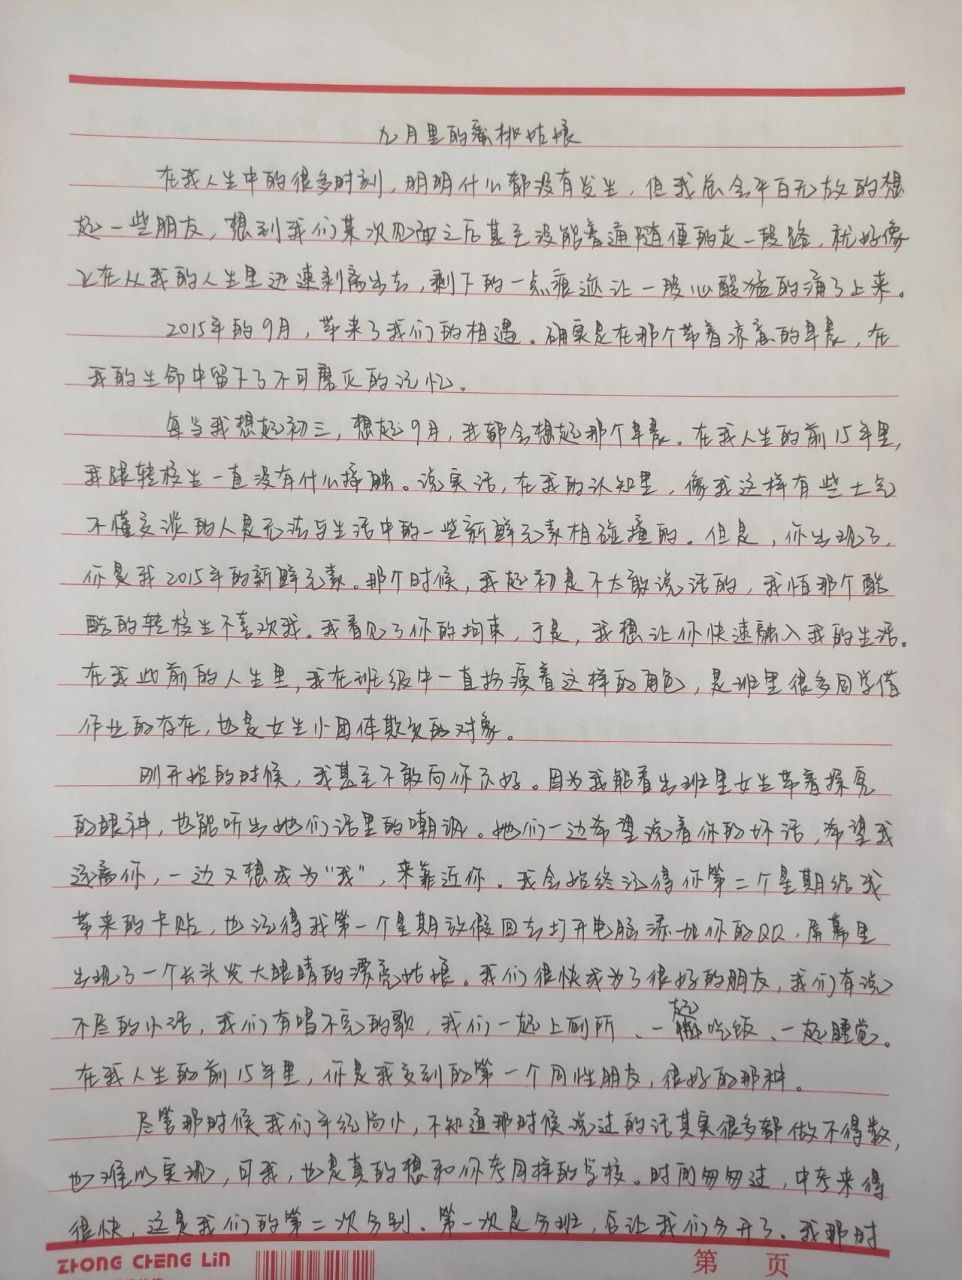 九月里的蜜桃姑娘
在我人生中的很多时刻，明明什么都没有发生，但我总会平白无故的想
起一些朋友，想到我们某次见面之后甚至没能普通随便的走一段路，就好像
正在从我的人生里迅速剥离出去，剩下的一点痕迹让一股心酸猛的涌了上来。
2015年的9月，带来了我们的相遇。确实是在那个带着凉意的早晨，在
我的生命中留下了不可磨灭的记忆。
每当我想起初三，想起9月，我都会想起那个早晨。在我人生的前15年里，
我跟转校生一直没有什么接触。说实话，在我的认知里，像我这样有些土气
不懂交谈的人是无法与生活中的一些新鲜元素相碰撞的。但是，你出现了，
你是我2015年的新鲜元素。那个时候，我起初是不太敢说话的，我怕那个酷
酷的转校生不喜欢我。我看见了你的拘束，于是，我想让你快速融入我的生活。
在我此前的人生里，我在班级中一直扮演着这样的角色，是班里很多同学借
作业的存在，也是女生小团体欺负的对象。
刚开始的时候，我甚至不敢向你示好。因为我能看出班里女生带着探究
的眼神，也能听出她们话里的嘲讽。她们一边希望说着你的坏话，希望我
远离你，一边又想成为“我”，来靠近你。我会始终记得你第二个星期给我
带来的卡贴，也记得我第一个星期放假回去打开电脑添加你的QQ，屏幕里
出现了一个长头发大眼睛的漂亮姑娘。我们很快成为了很好的朋友，我们有说
不尽的小话，我们有唱不完的歌，我们一起上厕所、一起吃饭、一起睡觉。
在我人生的前15年里，你是我交到的第一个同性朋友，很好的那种。
尽管那时候我们年纪尚小，不知道那时候说过的话其实很多都做不得数，
也难以实现，可我，也是真的想和你考同样的学校。时间匆匆过，中考来得
很快，这是我们的第二次分别。第一次是分班，后让我们分开了。我那时
ZHONG CHENG LiN
第 页